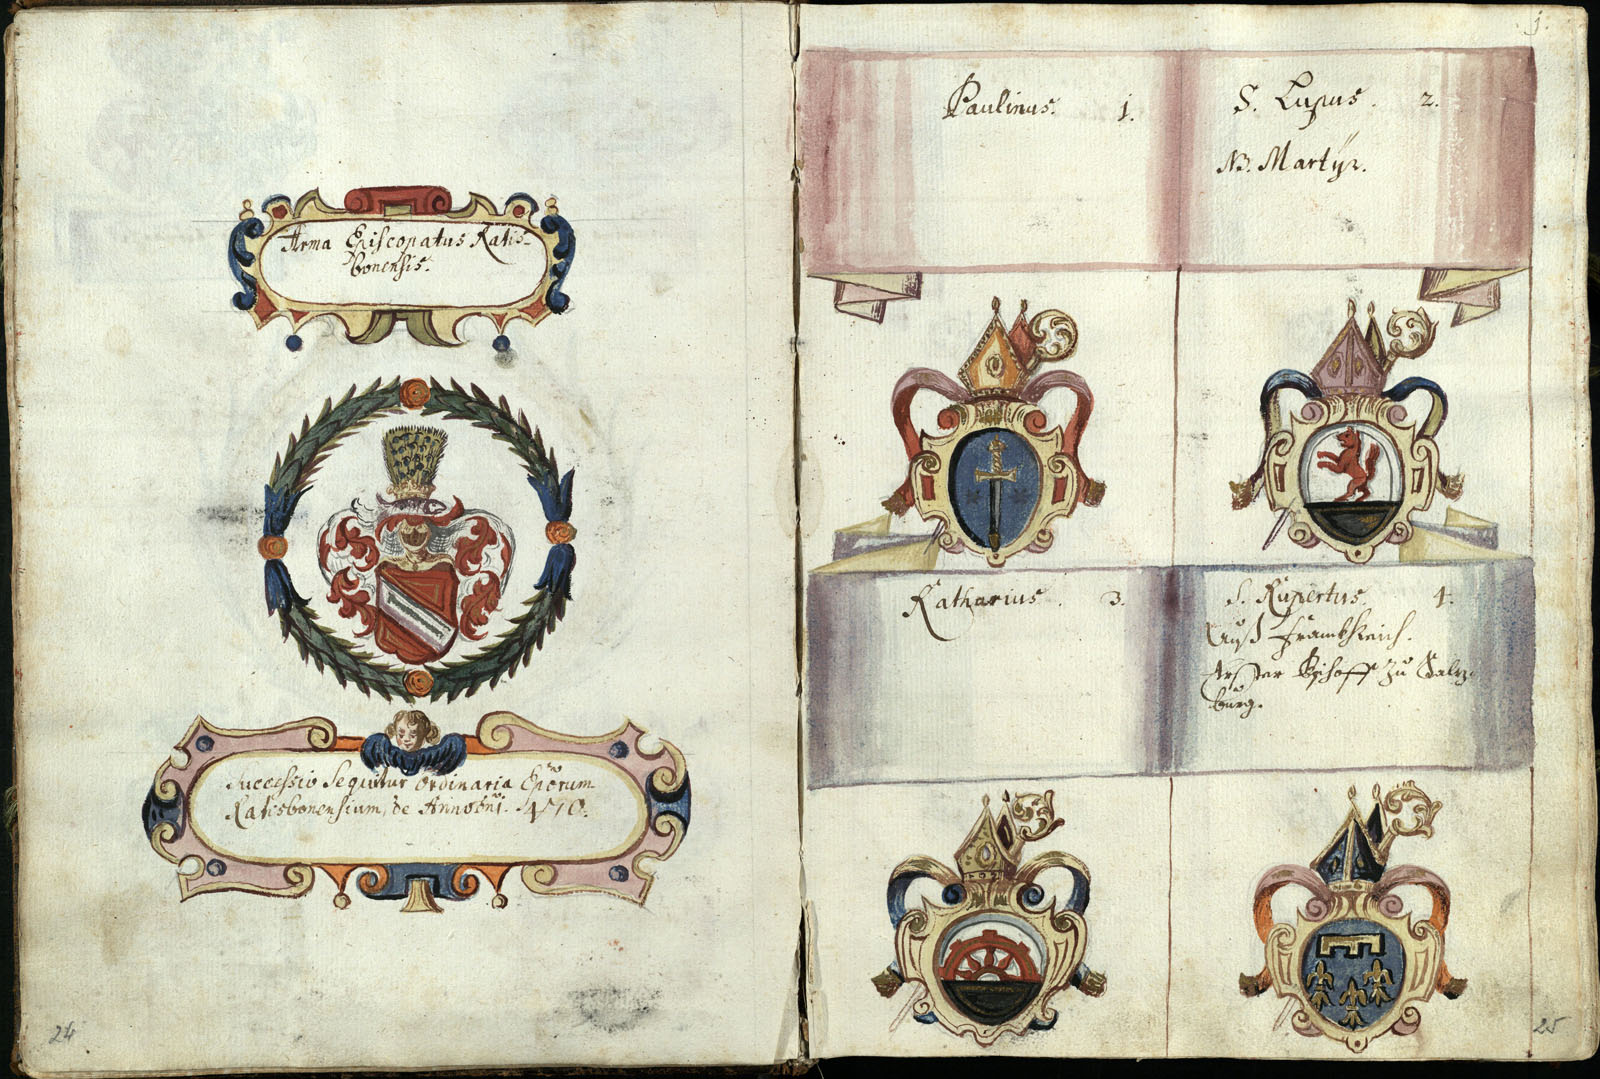 Arma Episcopatus Ratis-
bonensis.
Successio Sequitur Ordinaria Epõrum
Ratisbonensium, de Anno Dñi. 470.
24
j.
Paulinus. 1.
S. Lupus. 2.
N3. Martÿr.
Katharius. 3.
S. Rupertus. 4.
Auß Frankhreich.
Erster Bischoff zu Saltz-
burg.
25